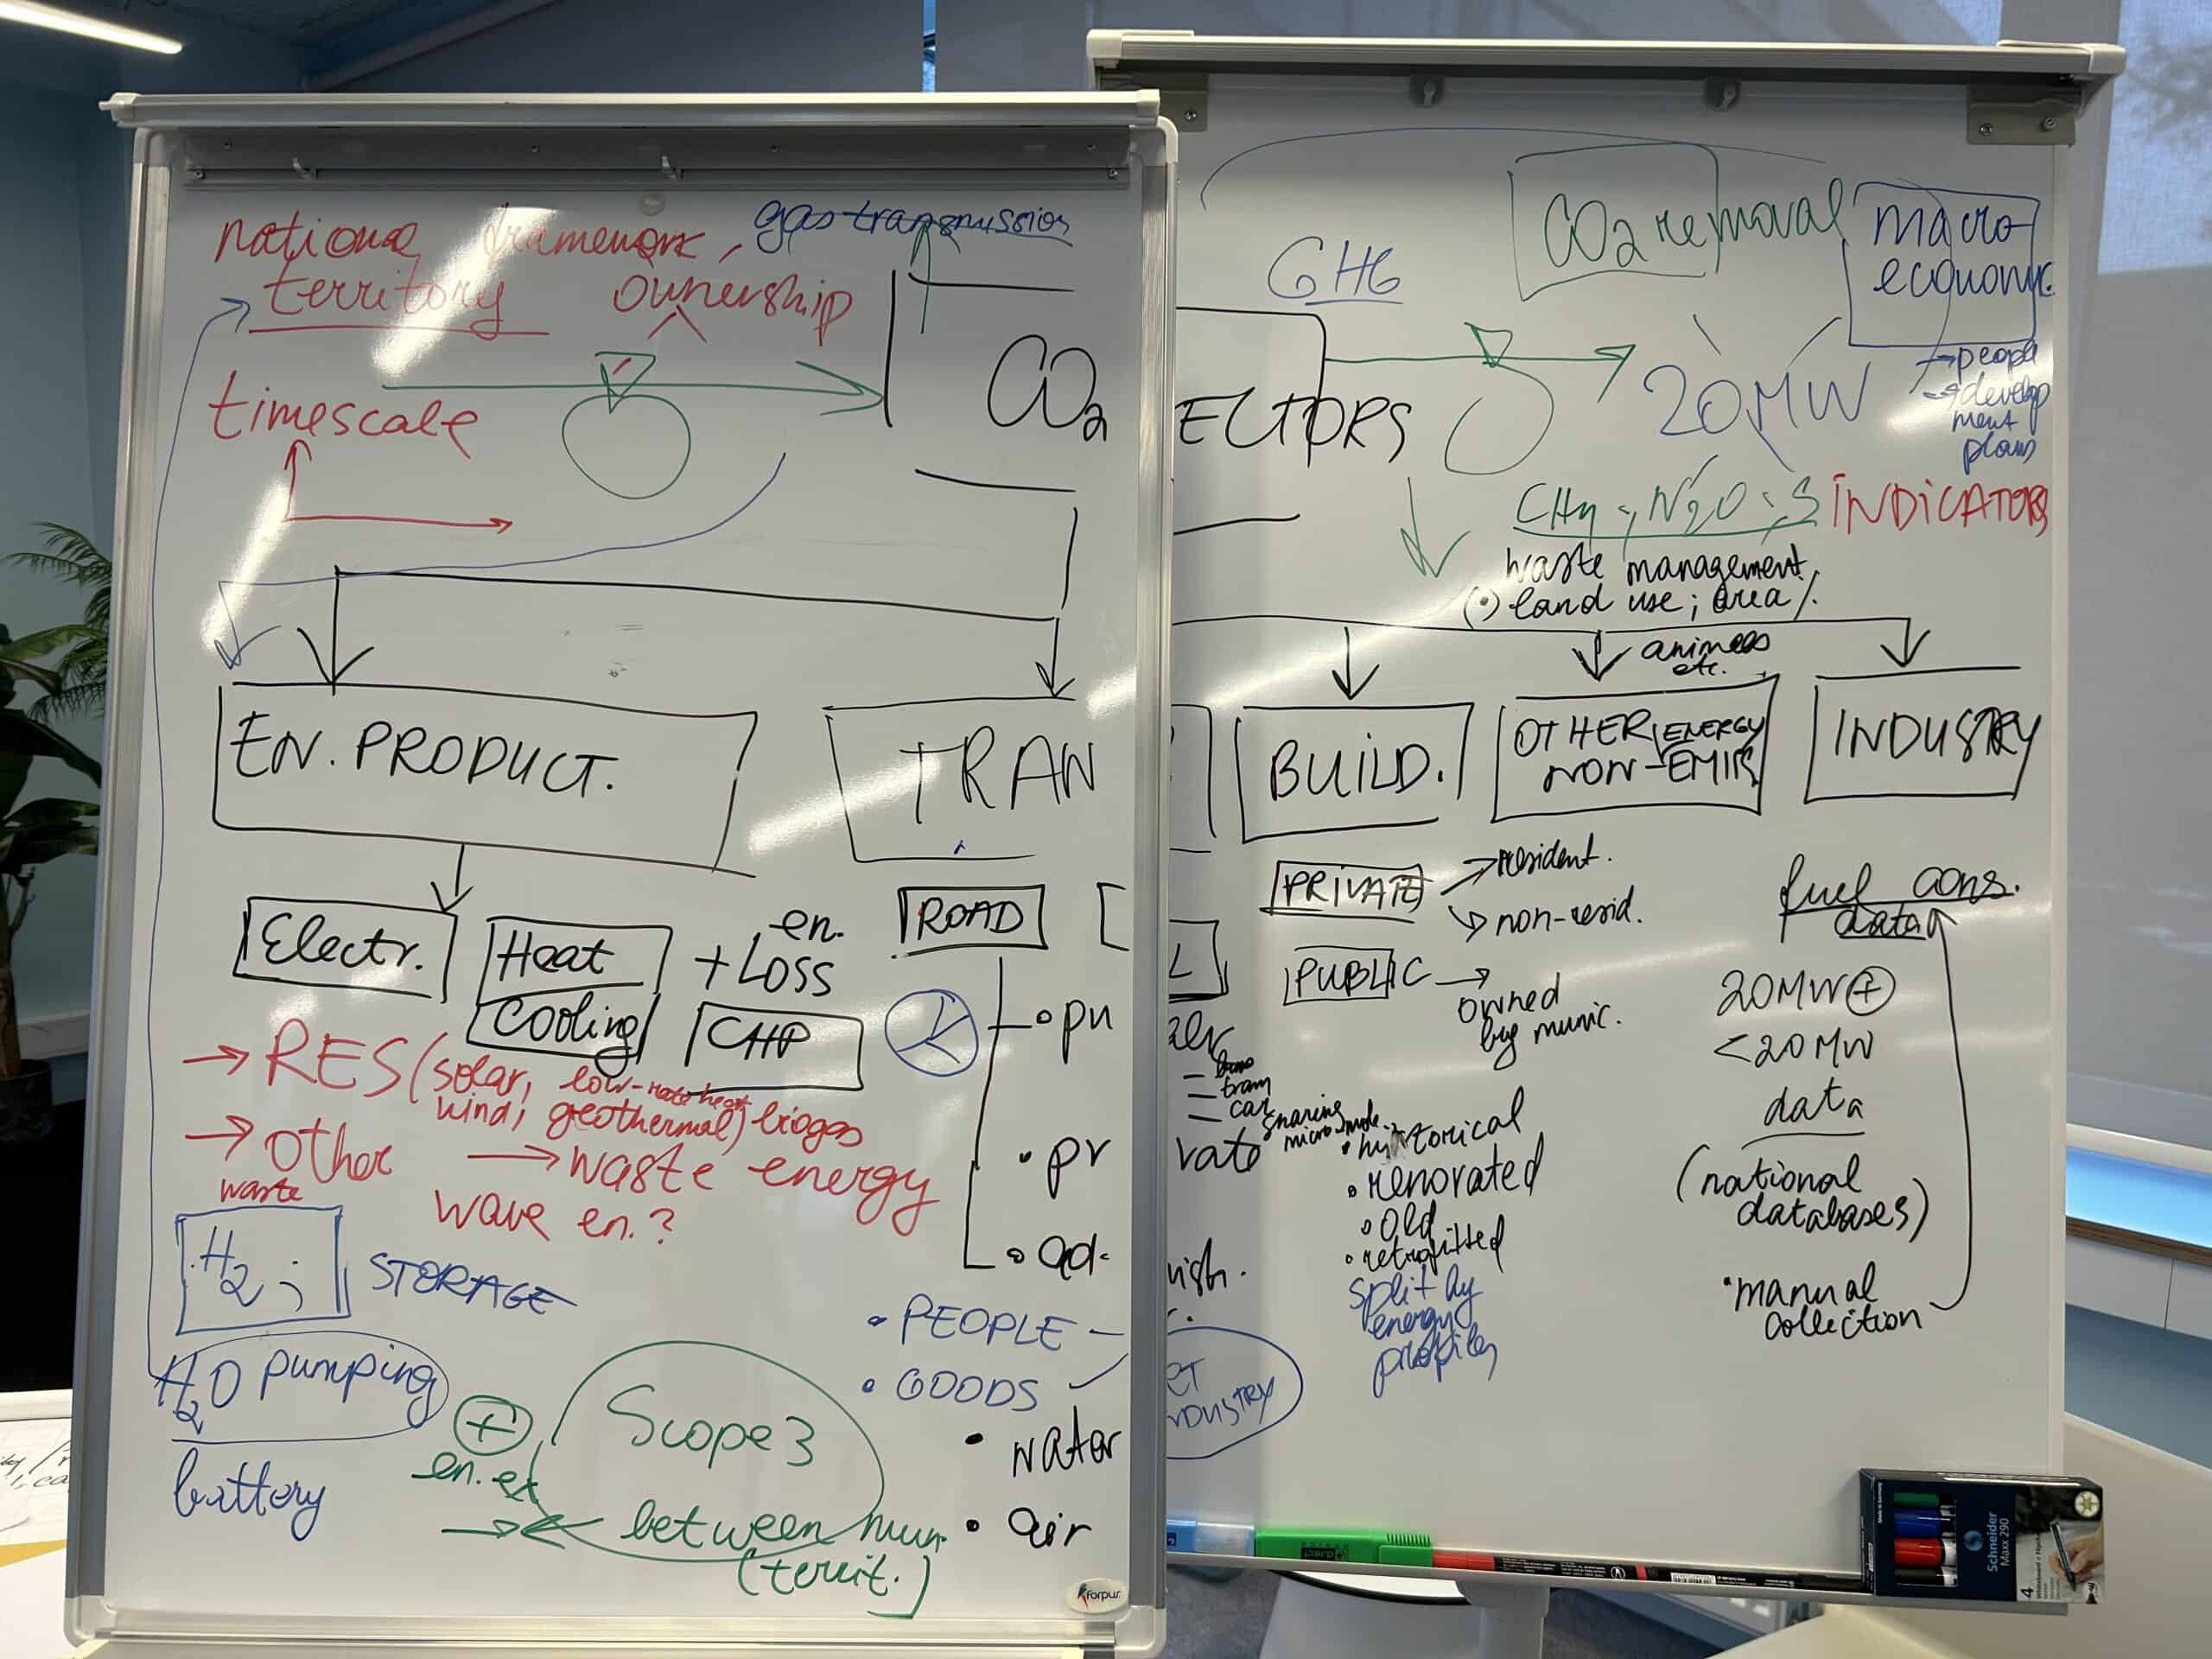 national framework, gas transmission
territory ownership
timescale
CO2
EN. PRODUCT.
TRAN
Electr.
Heat
Cooling
+ en. LOSS
CHP
ROAD
→ RES (solar, low-rate heat
wind, geothermal) biogas
→ other → waste energy
waste
wave en.?
H2 ;
STORAGE
H2O pumping
battery
+
en. ex
Scope 3
between mun.
(territ.)
• pu
• pr
• ad.
• PEOPLE –
• GOODS
• water
• air
forpus
GHG
CO2 removal
macro
economic.
→ people
→ develop
ment
plans
ECTORS
20MW
CH4 ; N2O ; S
INDICATORS
waste management
(•) land use ; area /.
animals
etc.
BUILD.
OTHER ENERGY
NON-EMIR
INDUSTRY
PRIVATE
→ resident.
→ non-resid.
PUBLIC →
owned
by munic.
L
– tram
– car sharing
vate
• historical
• renovated
• old
• retrofitted
split by
energy
profiles
ish.
ET
NDUSTRY
fuel cons.
data
20MW +
<20MW
data
(national
databases)
• manual
collection
Schneider
Maxx 290
4